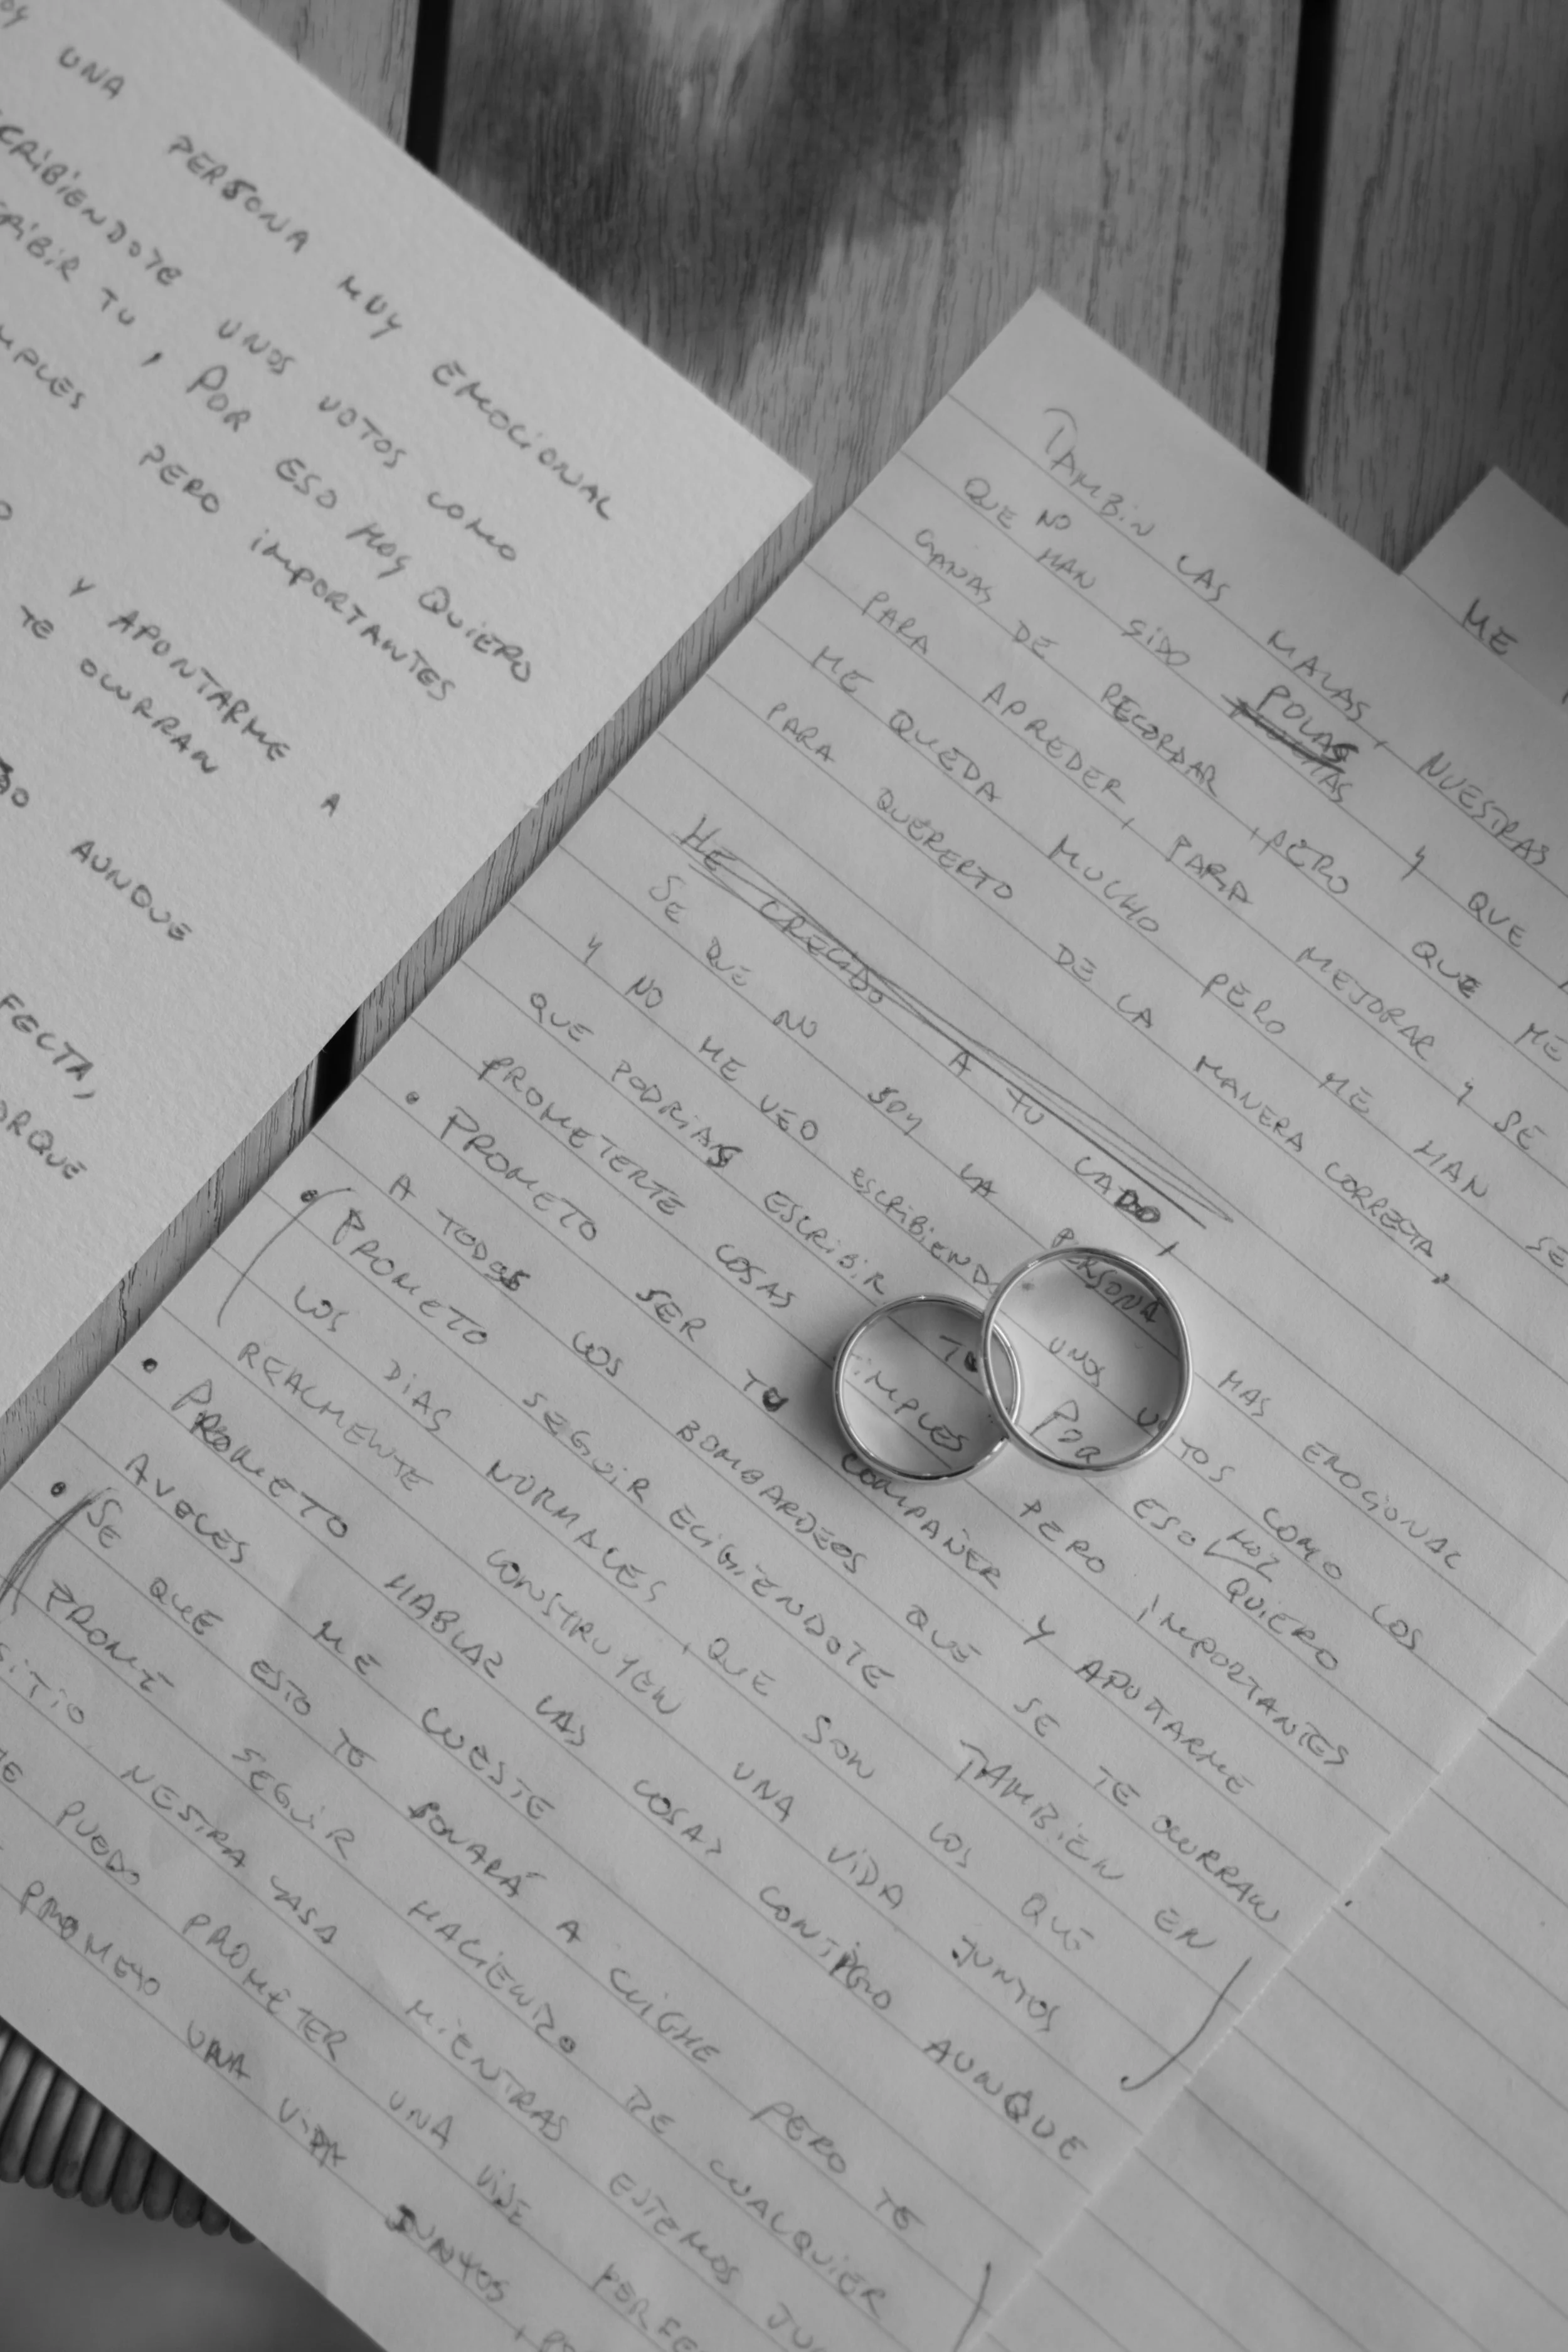 UNA PERSONA MUY EMOCIONAL
CRIBIENDOTE UNOS VOTOS COMO
CRIBIR TU, POR ESO HOY QUIERO
MPLES PERO IMPORTANTES
Y APONTARME A
TE OCURRAN
AUNQUE
FECTA,
ORQUE
TAMBIN LAS MALAS, NUESTRAS
QUE NO HAN SIDO POCAS Y QUE
GANAS DE RECORDAR, PERO QUE ME
PARA APREDER, PARA MEJORAR Y SE
ME QUEDA MUCHO PERO ME HAN SE
PARA QUERERTO DE LA MANERA CORRECTA,
HE CRECIDO A TU LADO,
SE QUE NO SOY LA PERSONA MAS EMOCIONAL
Y NO ME VEO ESCRIBIENDO UNOS VOTOS COMO LOS
QUE PODRIAS ESCRIBIR TU POR ESO HOY QUIERO
PROMETERTE COSAS SIMPLES PERO IMPORTANTES
• PROMETO SER TU COMPAÑER Y APUTARME
A TODOS LOS BOMBARDEOS QUE SE TE OCURRAN
• PROMETO SEGUIR ELIGIENDOTE TAMBIEN EN
LOS DIAS NORMALES, QUE SON LOS QUE
REALMENTE CONSTRUYEN UNA VIDA JUNTOS
• PROMETO HABLAR LAS COSAS CONTIGO AUNQUE
AVECES ME CUESTE
• SE QUE ESTO TE SONARÁ A CLICHE PERO TE
PROME SEGUIR HACIENDO DE CUALQUIER
SITIO NESTRA CASA MIENTRAS ESTEMOS JU
TE PUEDO PROMETER UNA VIDE PERFE
PROMETO UNA VIDA JUNTOS,
ME